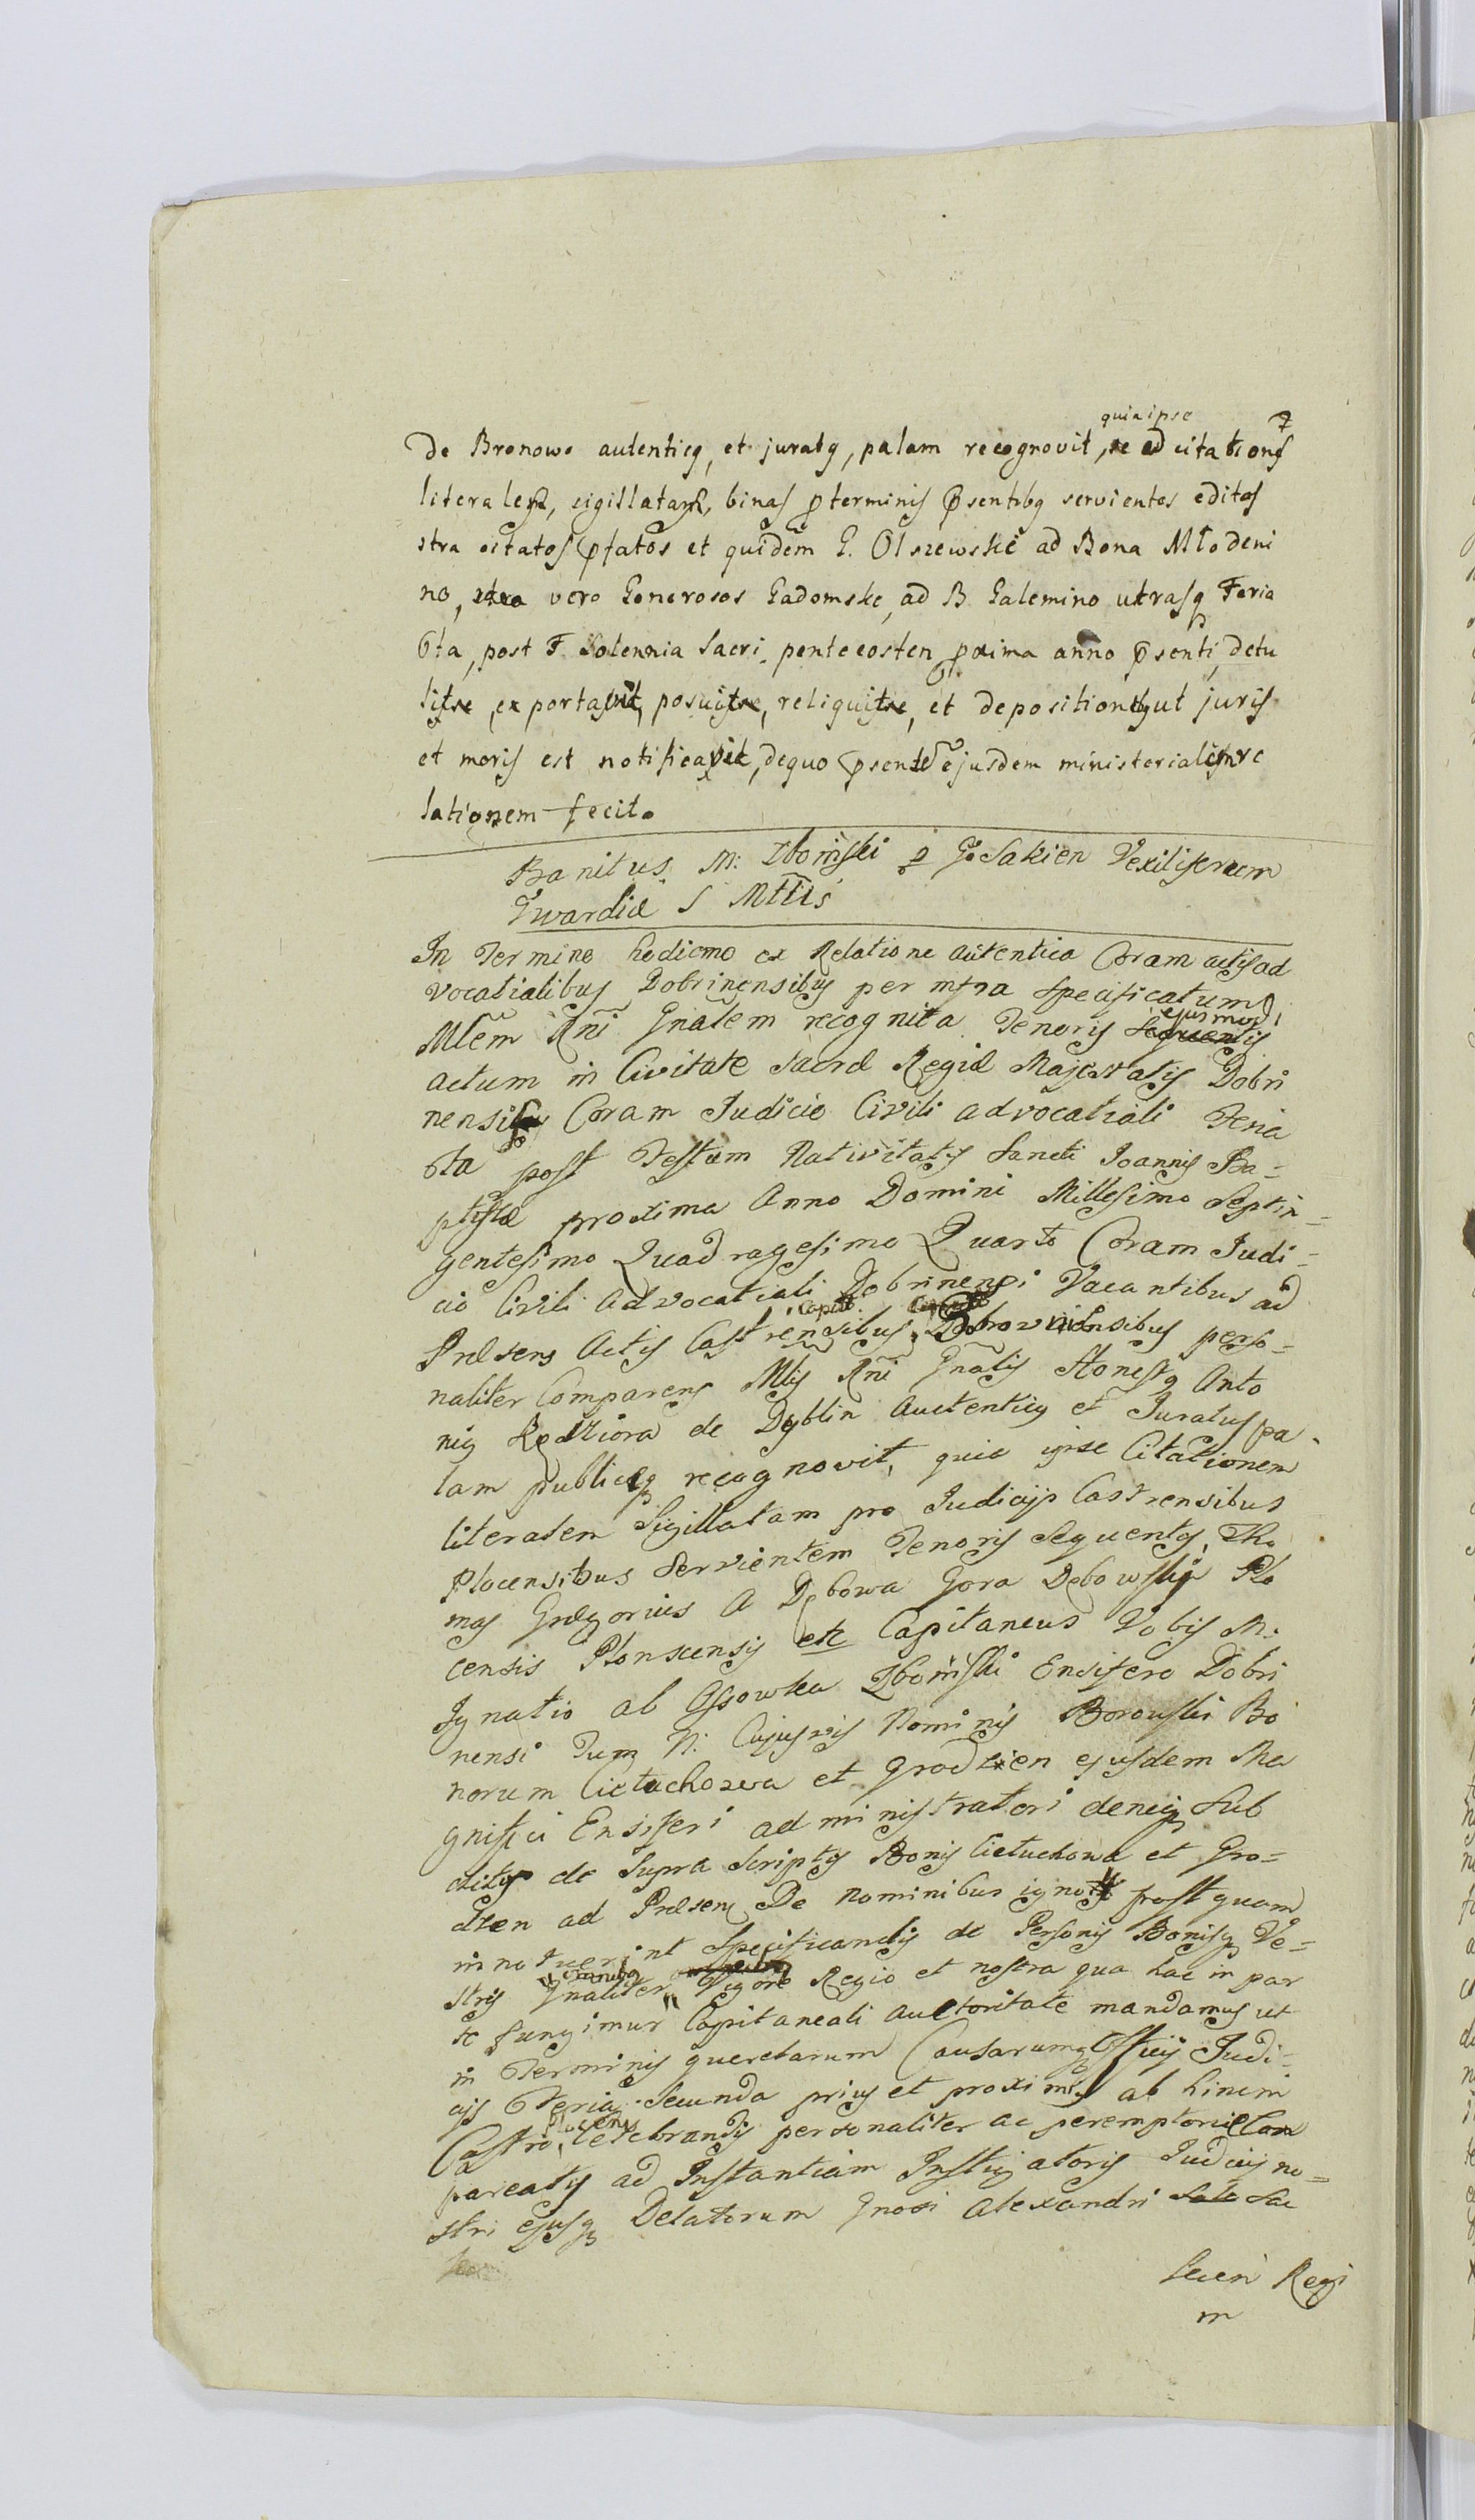 quia ipse
De Bronowo autenticq, et juratq, palam recognovit, citationes
literales, sigillatas, binas pterminis psentibq servientes editas
stra citatos pfatos et quidem G. Olszewski ad Bona Młodeni
no, vero Generosos Gadomskie, ad B Galemino utrasq Feria
6ta, post F. Solennia Sacri pentecosten pxima anno psenti, detu
lisse, exportavit, posuisse, reliquisse, et depositiones ut juris
et moris est notificavit, dequo psentem ejusdem ministerialis re
lationem fecit.
Banitus M: Zboiński p G. Sakien Vexiliferum
Gwardiæ S Mttis
In Termino hodierno ex Relatione autentica Coram actis ad
vocatialibus Dobrinensibus per infra Specificatum
Mlem Rni Gnalem recognita Tenoris Sequentis ejusmodi
actum in Civitate Sacræ Regiæ Majestatis Dobri
nensi Coram Judicio Civili advocatiali Feria
6ta post Festum Nativitatis Sancti Joannis Ba-
ptistæ proxima Anno Domini Millesimo Septin-
gentesimo Quadragesimo Quarto Coram Judi-
cio Civili Advocatiali Dobrinensi Vacantibus ad
Præsens Actis Castrensibus Capit. Bobrovniensibus perso-
naliter Comparens Mlis Rni Gnalis Honestq Anto
niq de Dyblin Auctenticq et Juratus pa-
lam publiceq recognovit, quia ipse Citationem
literalem Sigillatam pro Judicijs Castrensibus
Plocensibus Servientem Tenoris Sequentis, Tho
mas Gregorius A Dębowa Gora Dębowski Plo
censis Plonscensis etc Capitaneus Vobis M.
Ignatio ab Ossowka Zboiński Ensifero Dobri
nensi Tum N: Cujusvis Nominis Borowski Bo
norum Cietuchowa et Grodzien ejusdem Ma
gnifici Ensiferi administratori deniq Sub
ditis de Supra Scriptis Bonis Cietuchowa et Gro-
dzen ad Præsens De Nominibus ignotis postquam
innotuerint Specificandis de Personis Bonisq Ve-
stris Gnaliter omnibq Vigore Regio et nostra qua hac in par
te fungimur Capitaneali Auctoritate mandamus ut
in Terminis querelarum Causarumq Officij Judi-
cijs Feria Secunda prius et proxime ab hinc in
Castro Plocens Celebrandis personaliter ac peremptorie Com
pareatis ad Instantiam Instigatoris Judicij no-
stri ejusq Delatorum Gnosi Alexandri Sac
Sacien Regi
m